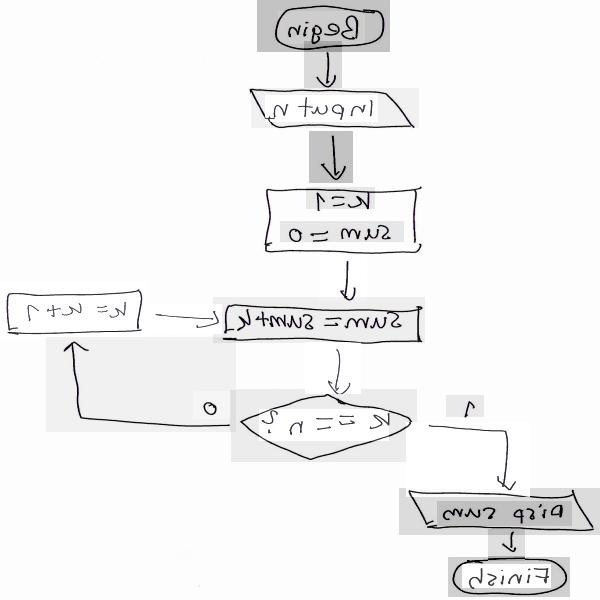 Begin
Input n
k=1
sum = 0
sum = sum+k
k = k+1
k == n ?
0
1
Disp sum
Finish